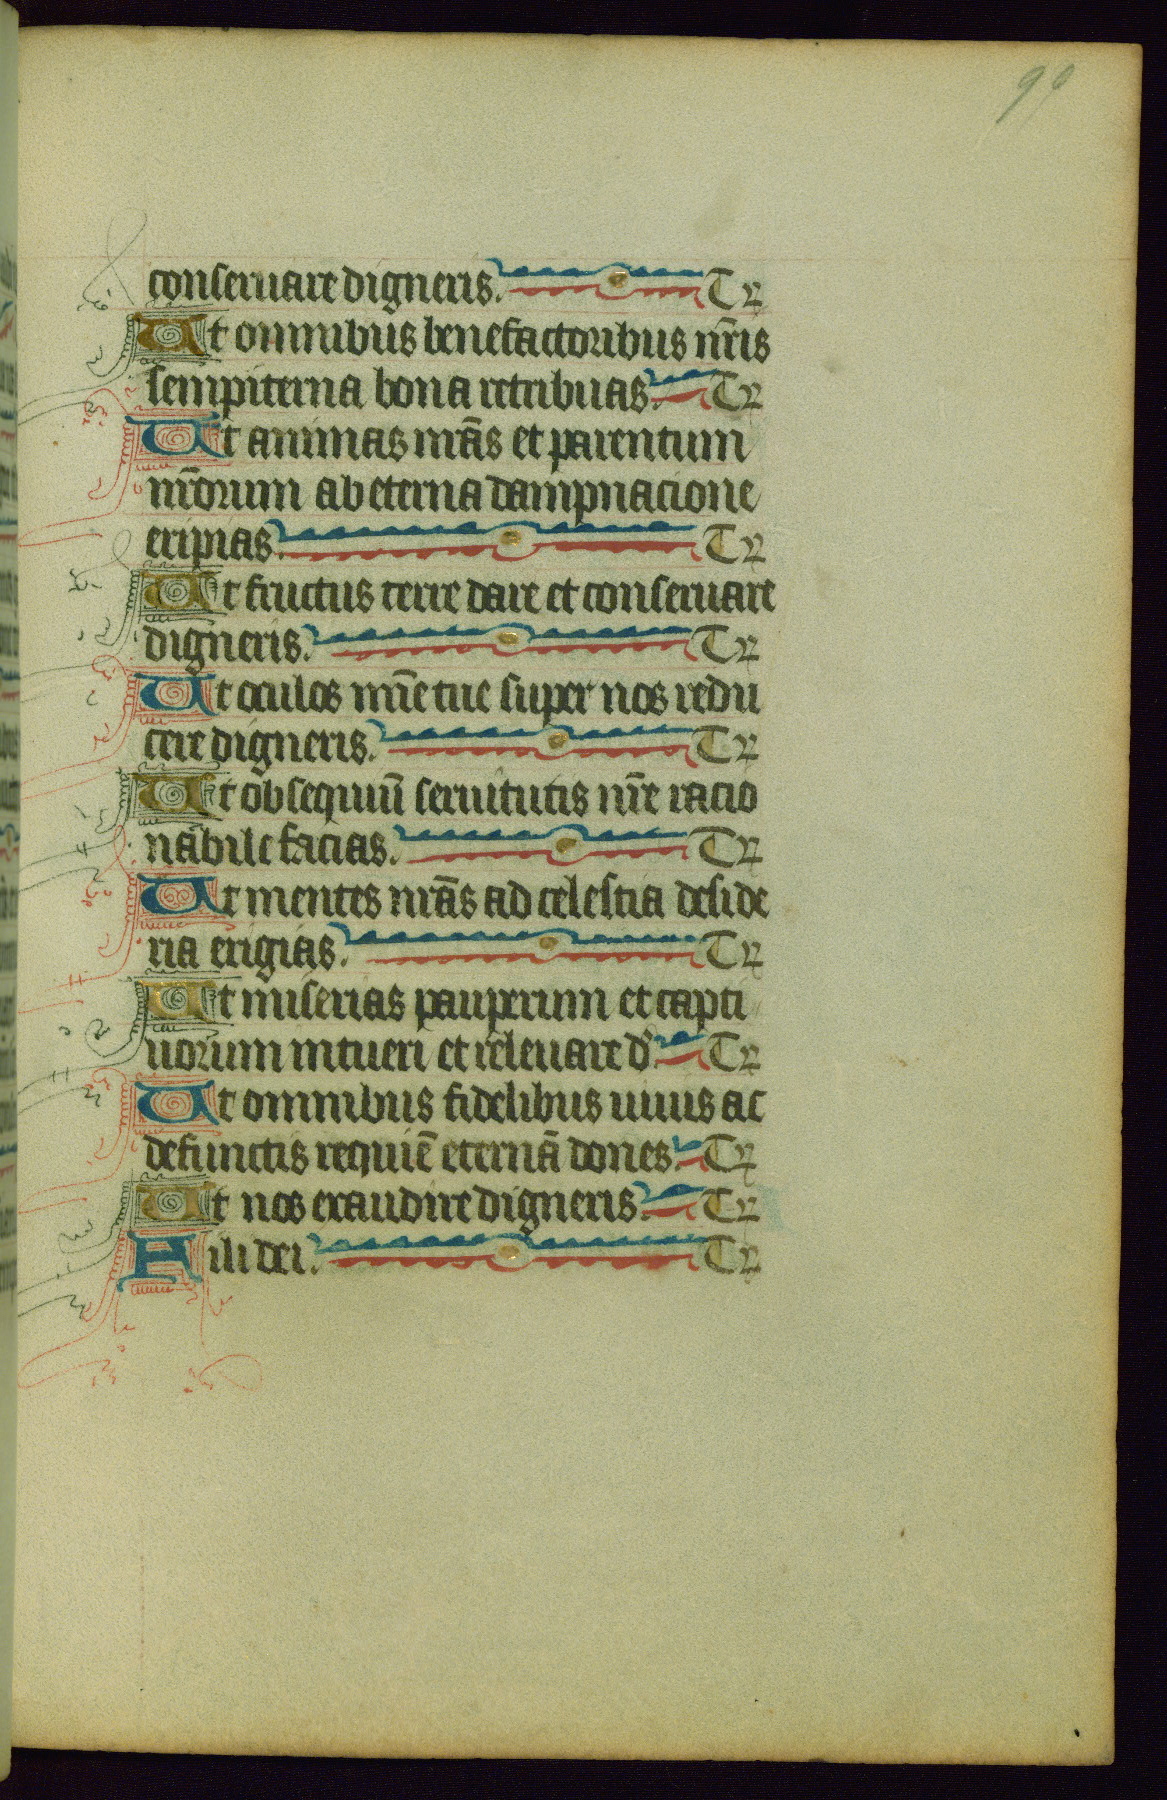 99
conseruare digneris. Tꝛ
Ut omnibus benefactoribus nr̄is
sempiterna bona retribuas. Tꝛ
Ut animas nr̄as et parentum
nr̄orum ab eterna dampnacione
eripias. Tꝛ
Ut fructus terre dare et conseruare
digneris. Tꝛ
Ut oculos mīe tue super nos redu
cere digneris. Tꝛ
Ut obsequiū seruitutis nr̄e racio
nabile facias. Tꝛ
Ut mentes nr̄as ad celestia deside
ria erigias. Tꝛ
Ut miserias pauperum et capti
uorum intueri et releuare d. Tꝛ
Ut omnibus fidelibus uiuis ac
defunctis requiē eternā dones. Tꝛ
Ut nos exaudire digneris. Tꝛ
Fili dei. Tꝛ